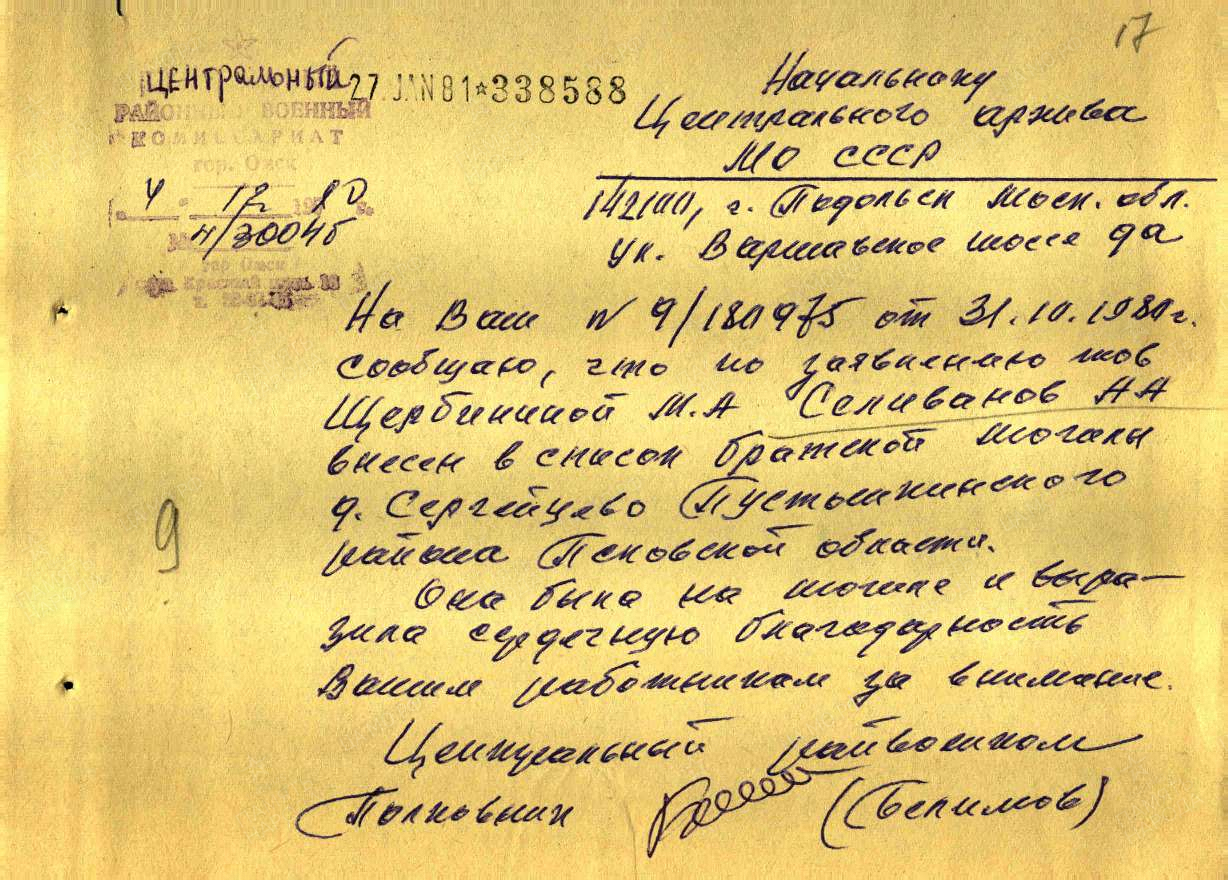 17
ЦЕНТРАЛЬНЫЙ
27 JAN 81☆338588
РАЙОННЫЙ ВОЕННЫЙ
КОМИССАРИАТ
гор. Омск
4 12 80 г.
4/30046
гор Омск
Начальнику
Центрального архива
МО СССР
142100, г. Подольск Моск. обл.
ул. Варшавское шоссе 9а
На Ваш N 9/180975 от 31.10.1980г.
сообщаю, что по заявлению тов
Щербининой М.А Селиванов АА
внесен в список братской могилы
д. Сергейцево Пустошкинского
района Псковской области.
Она была на могиле и выра-
зила сердечную благодарность
Вашим работникам за внимание.
9
Центральный райвоенком
Полковник (Белимов)